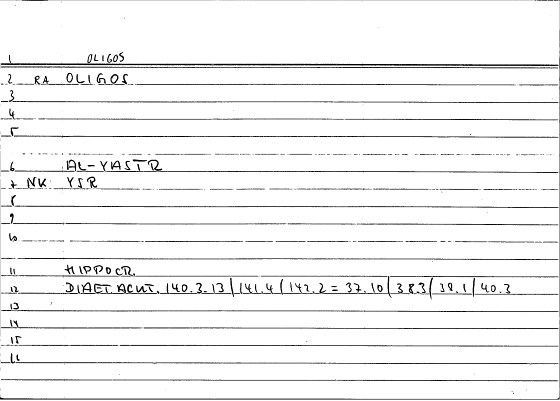 1 OLIGOS
2 RA OLIGOS
3
4
5
6 AL-YASIR
7 NK YSR
8
9
10
11 HIPPOCR.
12 DIAET. ACUT. 140.3.13 | 141.4 | 142.2 = 37.10 | 38.3 | 39.1 | 40.3
13
14
15
16